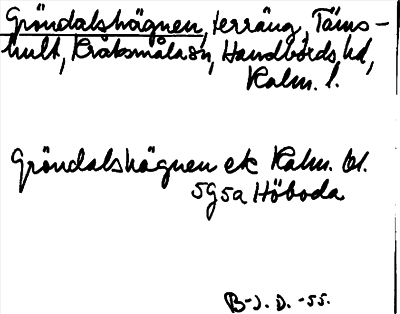 Gröndalshägnen, terräng, Täms-
hult, Kråksmåla sn, Handbörds hd,
Kalm. l.
Gröndalshägnen ek Kalm. bl.
5g5a Höboda
B-J. D. -55.